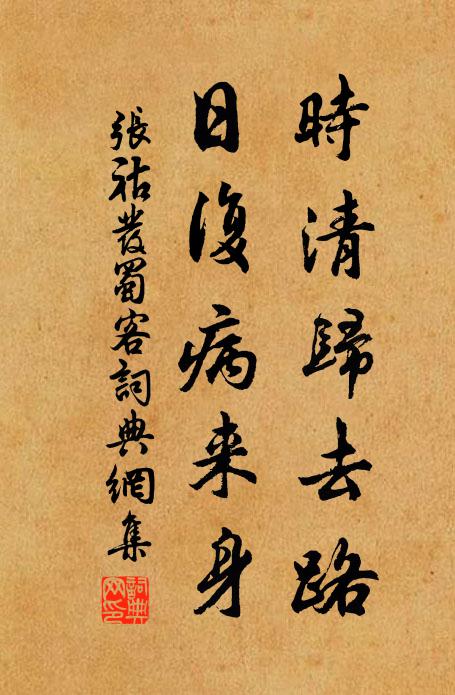 時清歸去路
日復病来身
張祜發蜀客詞典網集
詞典網印